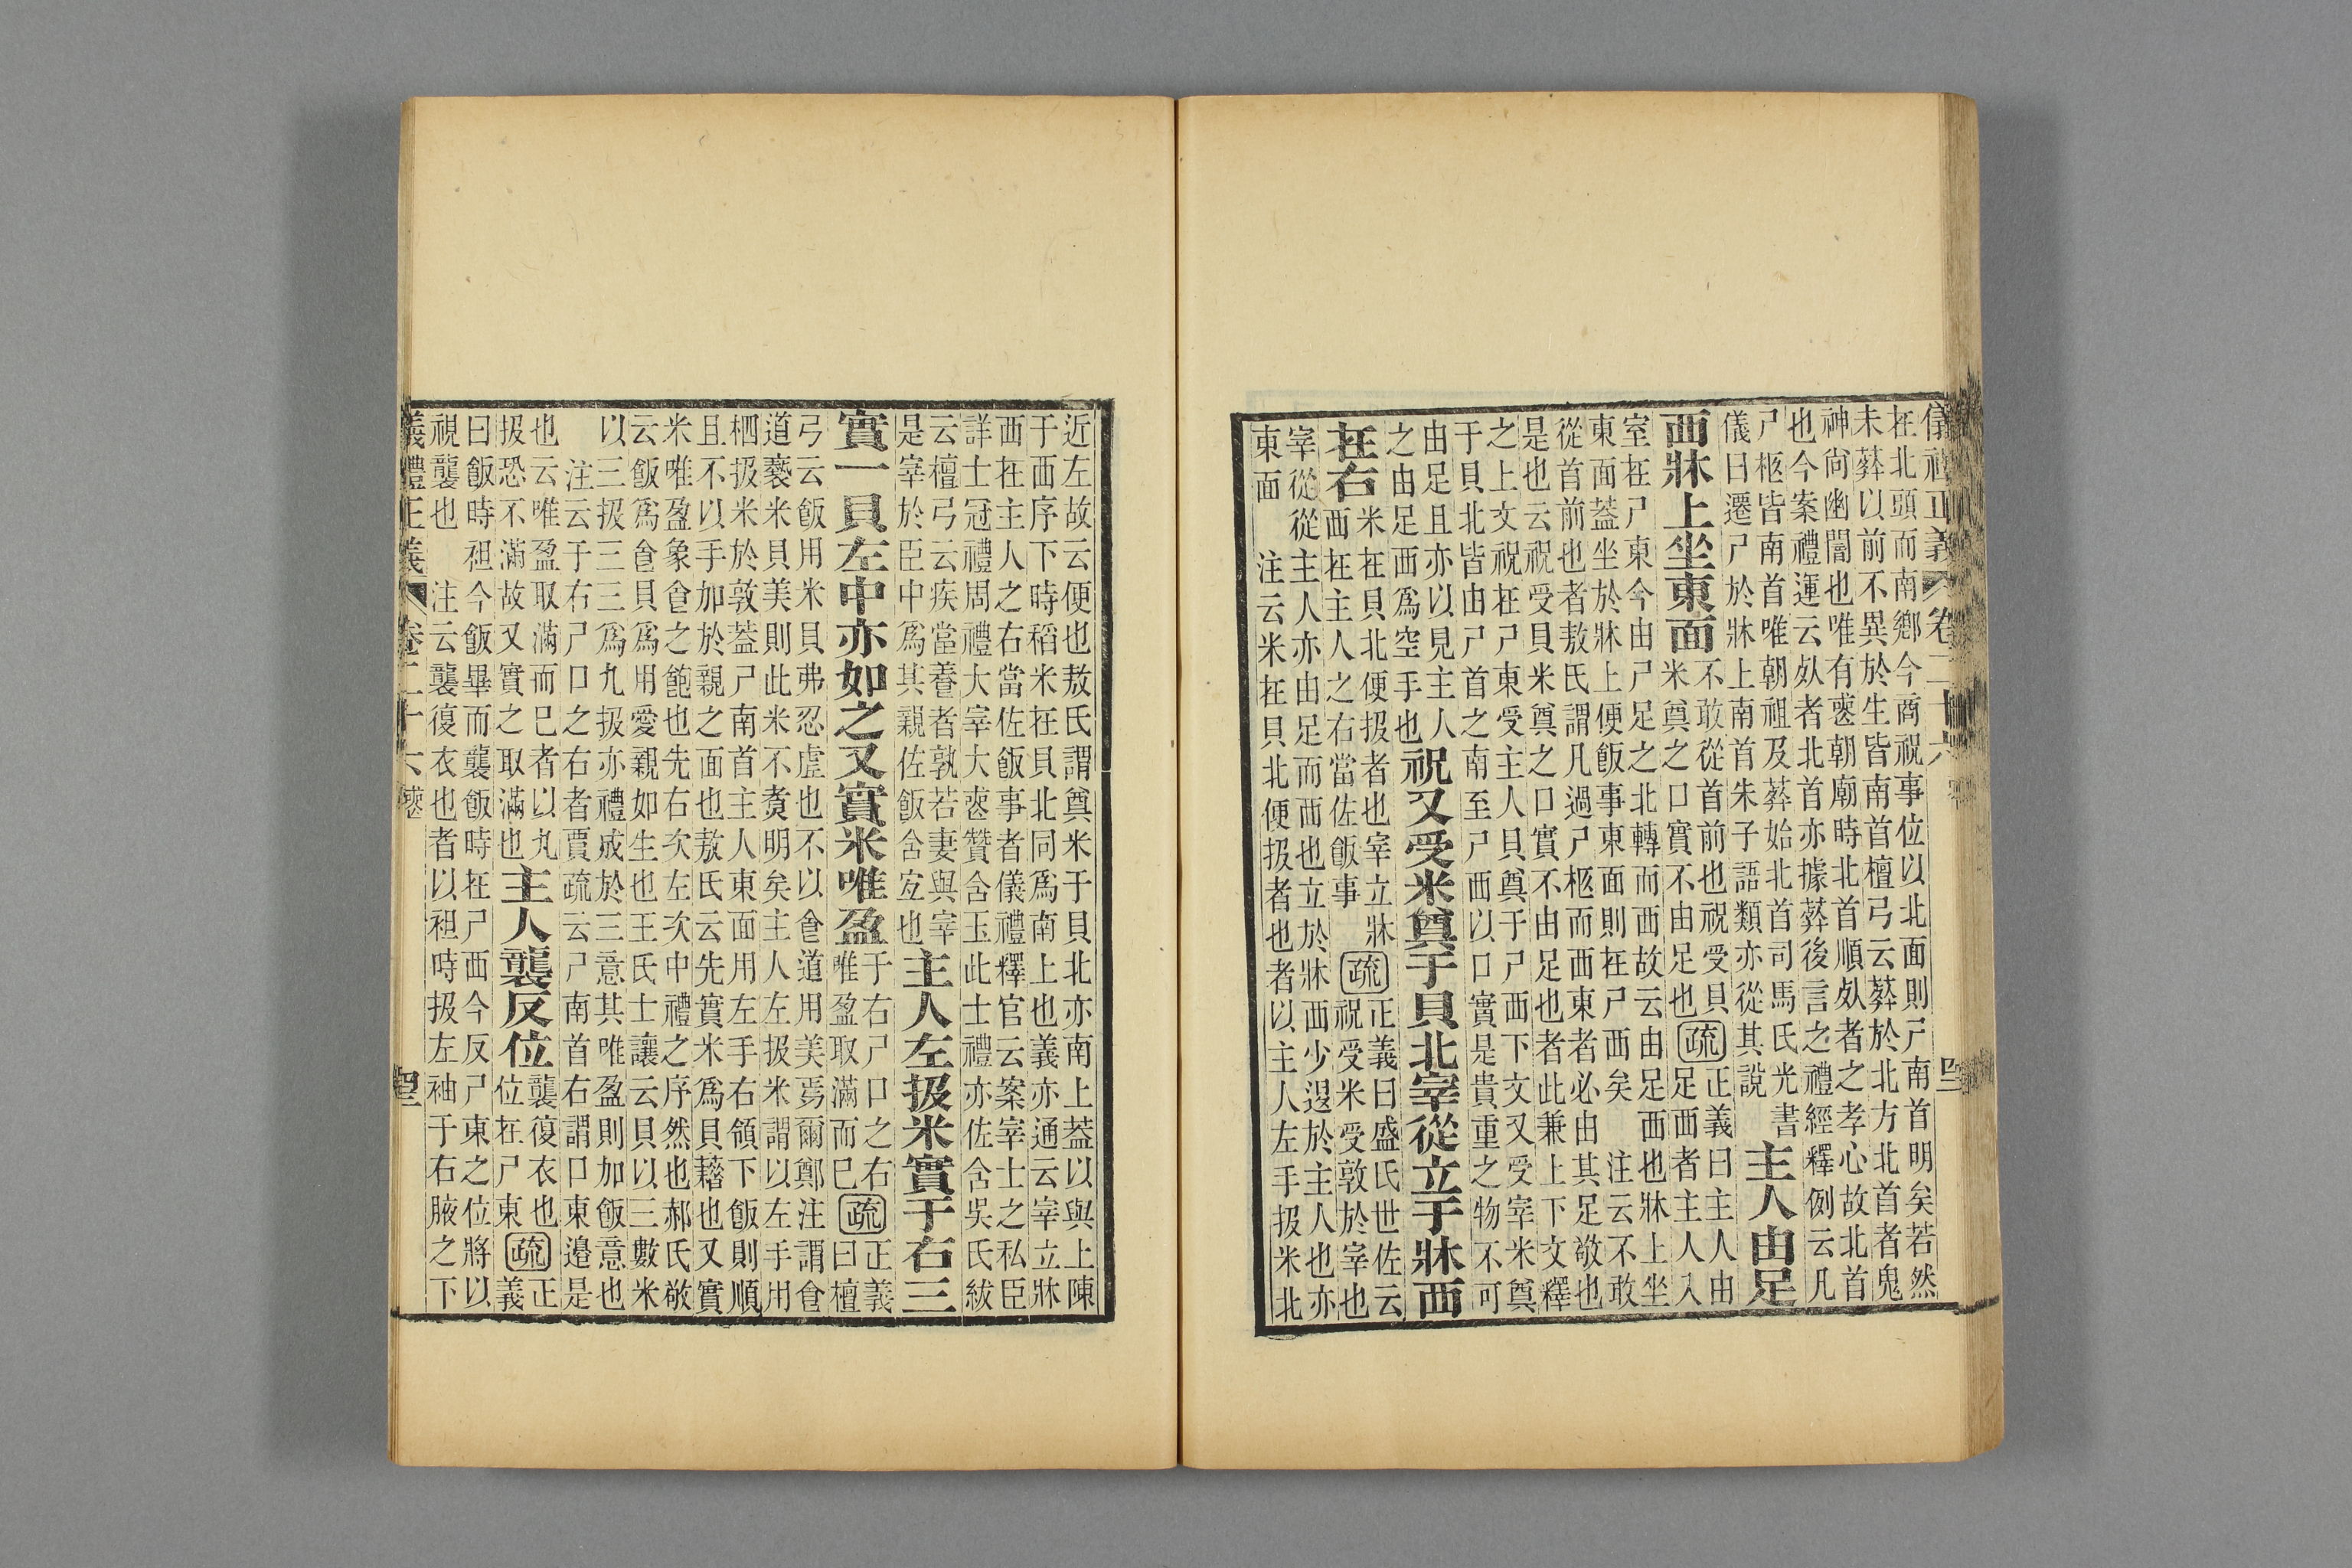 儀禮正義 卷二十六
在北頭而南鄉今商祝事位以北面則尸南首明矣若然
未葬以前不異於生皆南首檀弓云葬於北方北首者鬼
神尚幽闇也唯有喪朝廟時北首順死者之孝心故北首
也今案禮運云死者北首亦據葬後言之禮經釋例云凡
尸柩皆南首唯朝祖及葬始北首司馬氏光書
儀曰遷尸於牀上南首朱子語類亦從其說
主人由足
西牀上坐東面
不敢從首前也祝受貝
米奠之口實不由足也
疏
正義曰主人由
足西者主人入
室在尸東今由尸足之北轉而西故云由足西也牀上坐
東面蓋坐於牀上便飯事東面則在尸西矣 注云不敢
從首前也者敖氏謂凡過尸柩而西東者必由其足敬也
是也云祝受貝米奠之口實不由足也者此兼上下文釋
之上文祝在尸東受主人貝奠于尸西下文又受宰米奠
于貝北皆由尸首之南至尸西以口實是貴重之物不可
由足且亦以見主人
之由足西爲空手也
祝又受米奠于貝北宰從立于牀西
在右
米在貝北便扱者也宰立牀
西在主人之右當佐飯事
疏
正義曰盛氏世佐云
祝受米受敦於宰也
宰從從主人亦由足而西也立於牀西少退於主人也亦
東面 注云米在貝北便扱者也者以主人左手扱米北
近左故云便也敖氏謂奠米于貝北亦南上蓋以與上陳
于西序下時稻米在貝北同爲南上也義亦通云宰立牀
西在主人之右當佐飯事者儀禮釋官云案宰士之私臣
詳士冠禮周禮大宰大喪贊含玉此士禮亦佐含吳氏紱
云檀弓云疾當養者孰若妻與宰
是宰於臣中爲其親佐飯含宜也
主人左扱米實于右三
實一貝左中亦如之又實米唯盈
于右尸口之右
唯盈取滿而已
疏
正義
曰檀
弓云飯用米貝弗忍虛也不以食道用美焉爾鄭注謂食
道褻米貝美則此米不煑明矣主人左扱米謂以左手用
柶扱米於敦蓋尸南首主人東面用左手右領下飯則順
且不以手加於親之面也敖氏云先實米爲貝藉也又實
米唯盈象食之飽也先右次左次中禮之序然也郝氏敬
云飯爲食貝爲用愛親如生也王氏士讓云貝以三數米
以三扱三三爲九扱亦禮成於三意其唯盈則加飯意也
注云于右尸口之右者賈疏云尸南首右謂口東邉是
也云唯盈取滿而已者以九
扱恐不滿故又實之取滿也
主人襲反位
襲復衣也
位在尸東
疏
正
義
曰飯時袒今飯畢而襲飯時在尸西今反尸東之位將以
視襲也 注云襲復衣也者以袒時扱左袖于右腋之下
儀禮正義 卷二十六